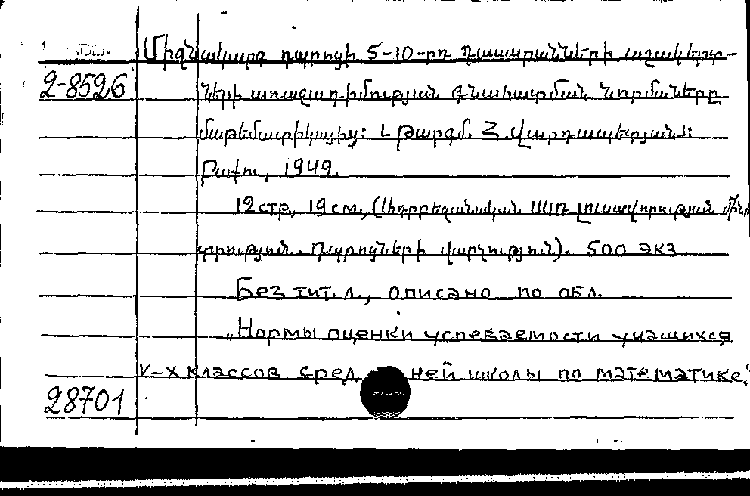 Միջնակարգ դպրոցի 5-10-րդ դասարանների աշակերտ-
2-8526
ների առաջադիմության գնահատման նորմաները
մաթեմատիկայից: Թարգմ. Հ. Վարդապետյան:
Բաքու, 1949.
12 стр, 19 см, (Ադրբեջանական ՍՍՌ լուսավորության մին
տրություն. Դպրոցների վարչություն). 500 экз
Без тит. л., описано по обл.
„Нормы оценки успеваемости учащихся
V-X классов средней школы по математике."
28701